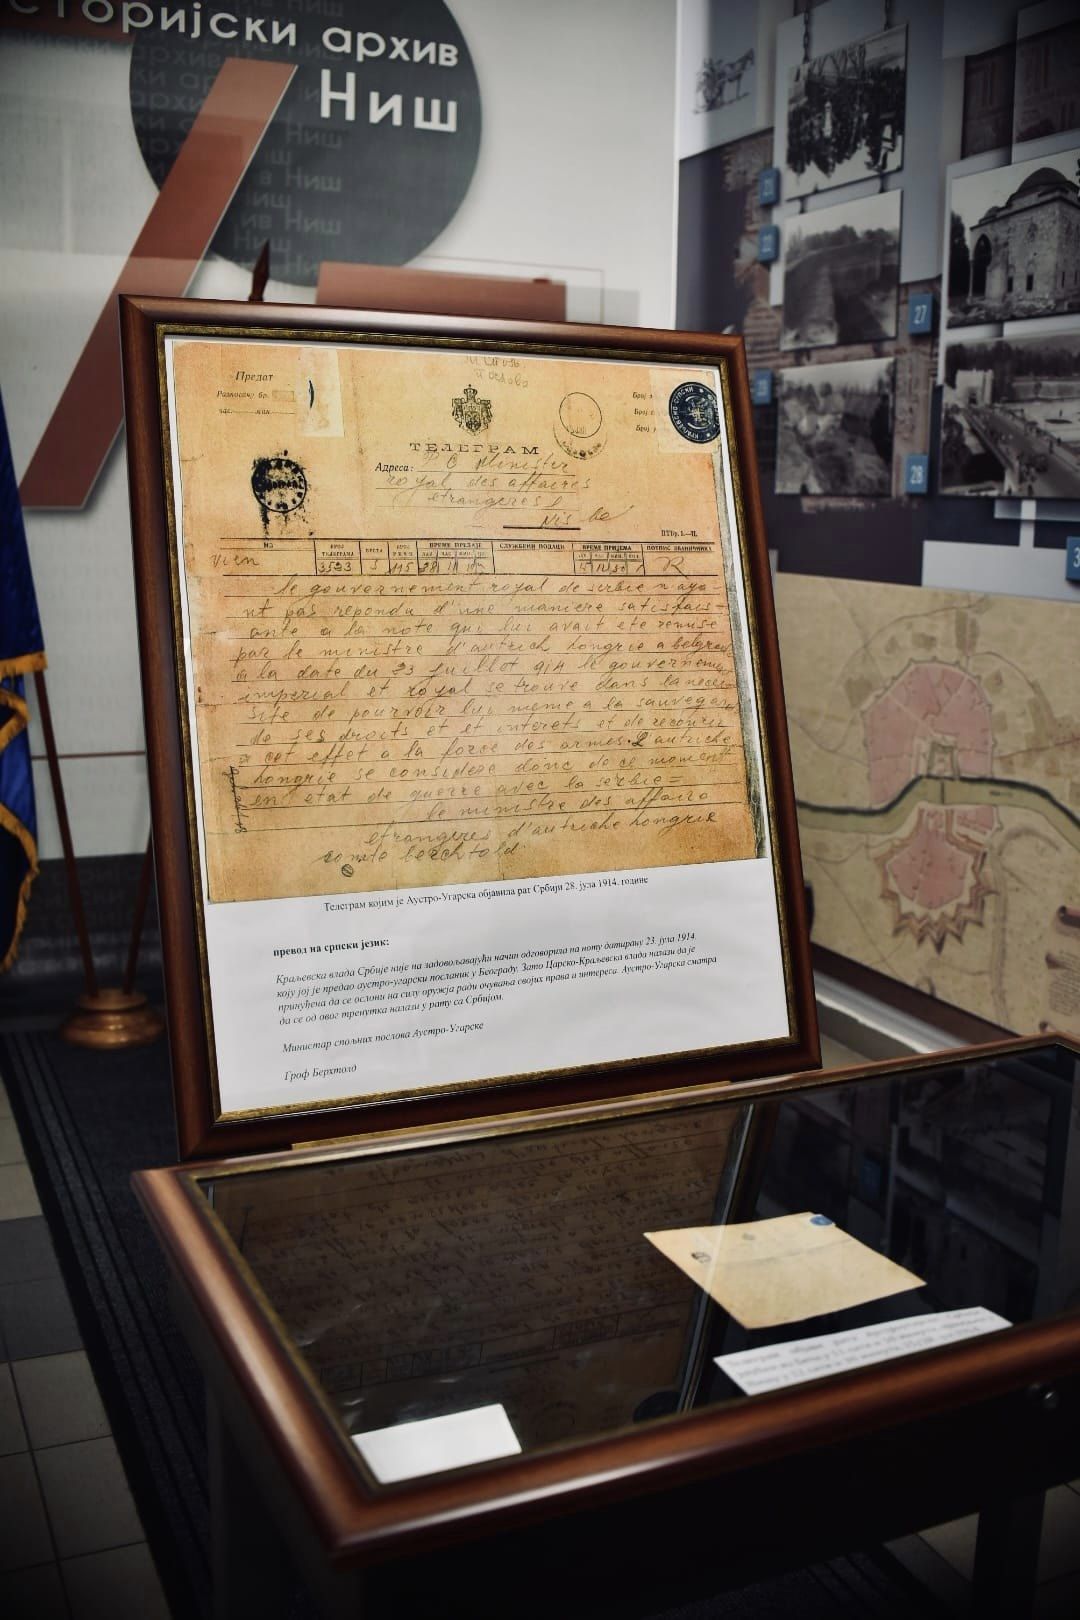 сторијски архив
Ниш
Предат
Разносачу бр.
час. мин.
Број
Број
Број
ТЕЛЕГРАМ
Адреса: P C Minister
royal des affaires
etrangeres
Nis
ИЗ
БРОЈ ТЕЛЕГРАМА
ВРСТА
БРОЈ РЕЧИ
ВРЕМЕ ПРЕДАЈЕ
СЛУЖБЕНИ ПОДАЦИ
ВРЕМЕ ПРИЈЕМА
ПОТПИС ЗВАНИЧНИКА
Vien 3523
le gouvernement royal de serbie n aya
nt pas repondu d'une maniere satisfais
ante a la note qui lui avait ete remise
par le ministre d'autrich hongrie a belgrade
a la date du 23 juillet 914 le gouverneme
imperial et royal se trouve dans la neces
site de pourvoir lui meme a la sauvegar
de ses droits et et interets et de recourir
a cet effet a la force des armes. L'autriche
hongrie se considere donc de ce moment
en etat de guerre avec la serbie =
le ministre des affairs
etrangeres d'autriche hongrie
comte berchtold
Телеграм којим је Аустро-Угарска објавила рат Србији 28. јула 1914. године
превод на српски језик:
Краљевска влада Србије није на задовољавајући начин одговорила на ноту датирану 23. јула 1914.
коју јој је предао аустро-угарски посланик у Београду. Зато Царско-Краљевска влада налази да је
принуђена да се ослони на силу оружја ради очувања својих права и интереса. Аустро-Угарска сматра
да се од овог тренутка налази у рату са Србијом.
Министар спољних послова Аустро-Угарске
Гроф Берхтолд
27
28